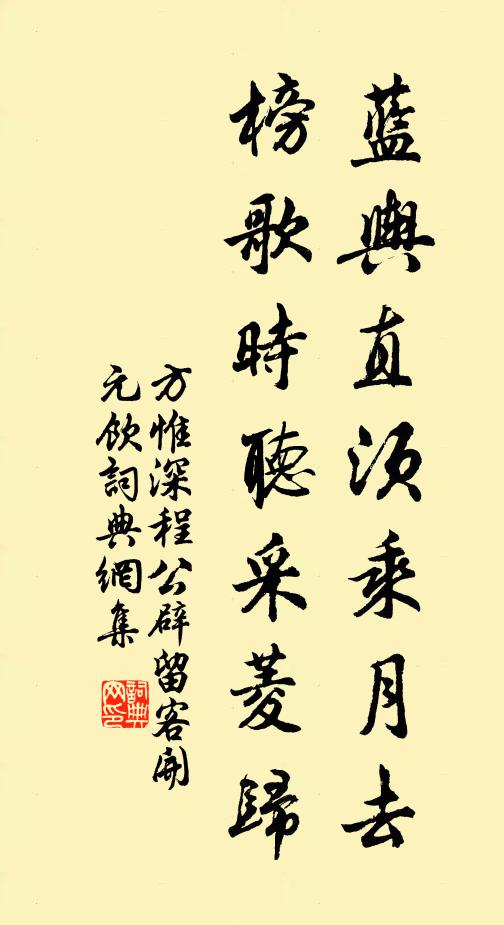 蓝輿直須乘月去
榜歌時聽采菱歸
方惟深程公辟留客開
元飲詞典網集
詞典
网印